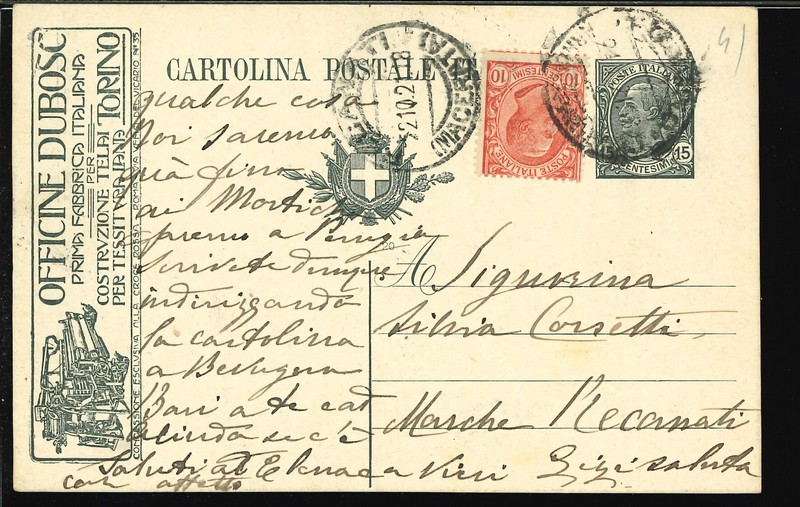 OFFICINE DUBOSC
PRIMA FABBRICA ITALIANA
PER
COSTRVZIONE TELAI
PER TESSITVRA
TORINO
CONCESSIONE ESCLVSIVA ALLA CROCE ROSSA
CARTOLINA POSTALE IT
(MACERATA)
POSTE ITALIANE
10 CENTESIMI 10
POSTE ITALIANE
CENTESIMI 15
qualche cosa
Noi saremo
quà fino
ai Morti
a Perugia
Scrivete dunque
indirizzando
la cartolina
a Bevagna
Baci a te ed
se c'è
Saluti ad Elena e a
con affetto
Gigi saluta
A Signorina
Silvia Corsetti
Marche Recanati